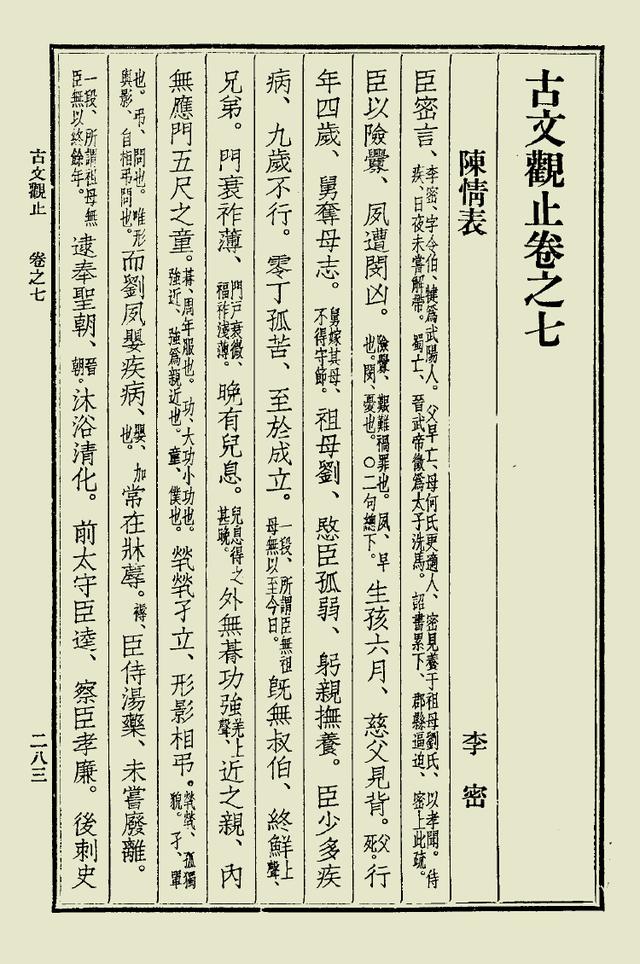 古文觀止卷之七
陳情表　李密
臣密言、李密、字令伯、犍爲武陽人。父早亡、母何氏更適人、密見養于祖母劉氏、以孝聞。侍疾、日夜未嘗解帶。蜀亡、晉武帝徵爲太子洗馬。詔書累下、郡縣逼迫、密上此疏。
臣以險釁、夙遭閔凶。險釁、艱難禍罪也。夙、早也。閔、憂也。〇二句總下。生孩六月、慈父見背。父死。行
年四歲、舅奪母志。舅嫁其母、不得守節。祖母劉、愍臣孤弱、躬親撫養。臣少多疾
病、九歲不行。零丁孤苦、至於成立。一段、所謂臣無祖母無以至今日。既無叔伯、終鮮上聲、
兄弟。門衰祚薄、門戶衰微、福祚淺薄。晚有兒息。兒息得之甚晚。外無朞功強羌上聲、近之親、內
無應門五尺之童。朞、周年服也。功、大功小功也。強近、強爲親近也。童、僕也。煢煢孑立、形影相弔。煢煢、孤獨貌。孑、單
也。弔、問也。唯形與影、自相弔問也。而劉夙嬰疾病、嬰、加也。常在牀蓐。褥、臣侍湯藥、未嘗廢離。
一段、所謂祖母無臣無以終餘年。逮奉聖朝、晉朝。沐浴清化。前太守臣逵、察臣孝廉。後刺史
古文觀止　卷之七　二八三